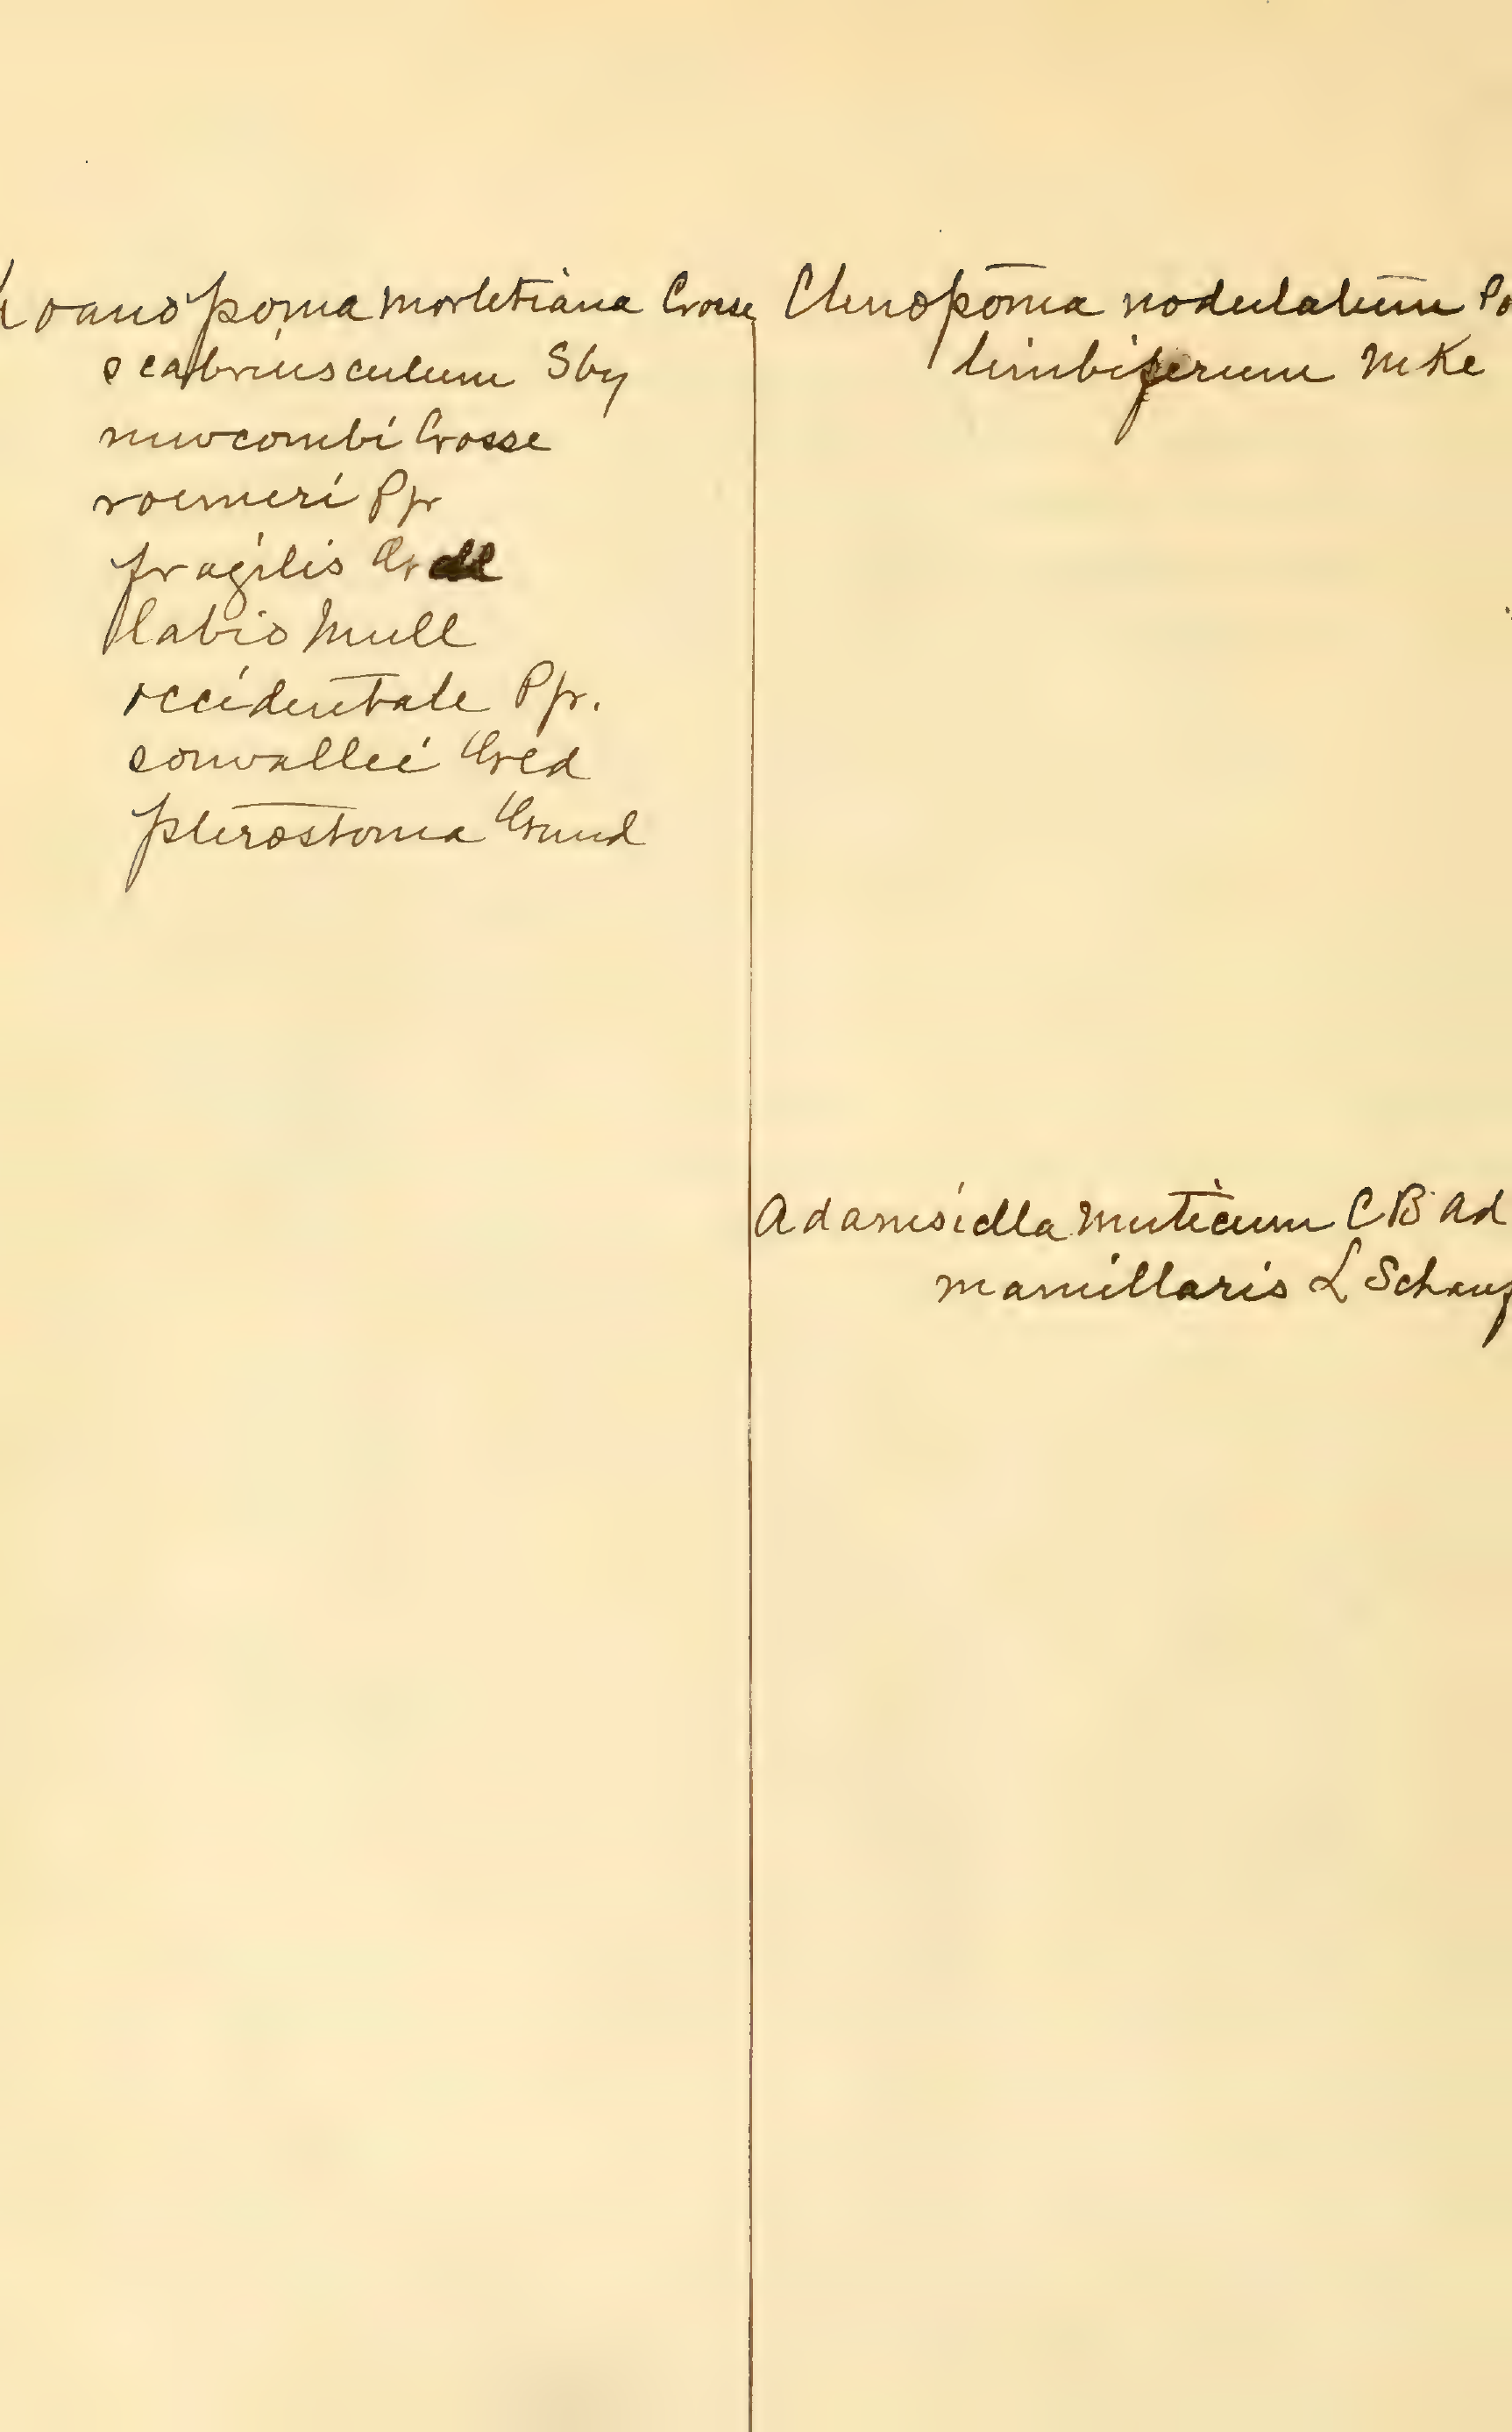 Choanopoma morletiana Crosse
scabriusculum Sby
newcombi Crosse
roemeri Pfr
fragilis
labio Mull
occidentale Pfr.
sowallei
pterostoma Grund
Ctenopoma nodulatum Po
limbiferum Mke
Adamsiella muticum C B Ad
mamillaris L Schauf